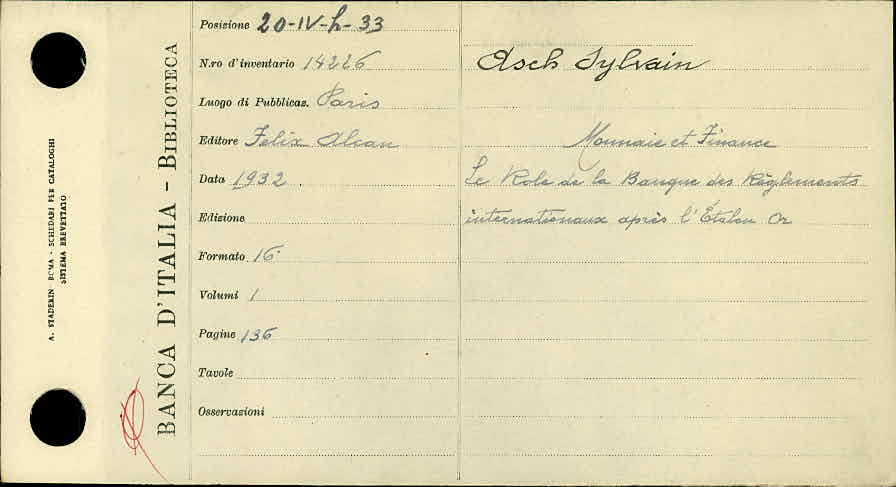 A. STADERINI ROMA - SCHEDARI PER CATALOGHI
SISTEMA BREVETTATO
BANCA D'ITALIA - BIBLIOTECA
Posizione 20-IV-h-33
N.ro d'inventario 14226
Luogo di Pubblicaz. Paris
Editore Felix Alcan
Data 1932
Edizione
Formato 16°
Volumi 1
Pagine 136
Tavole
Osservazioni
Asch Sylvain
Monnaie et Finance
Le Role de la Banque des Règlements
internationaux après l'Étalon Or